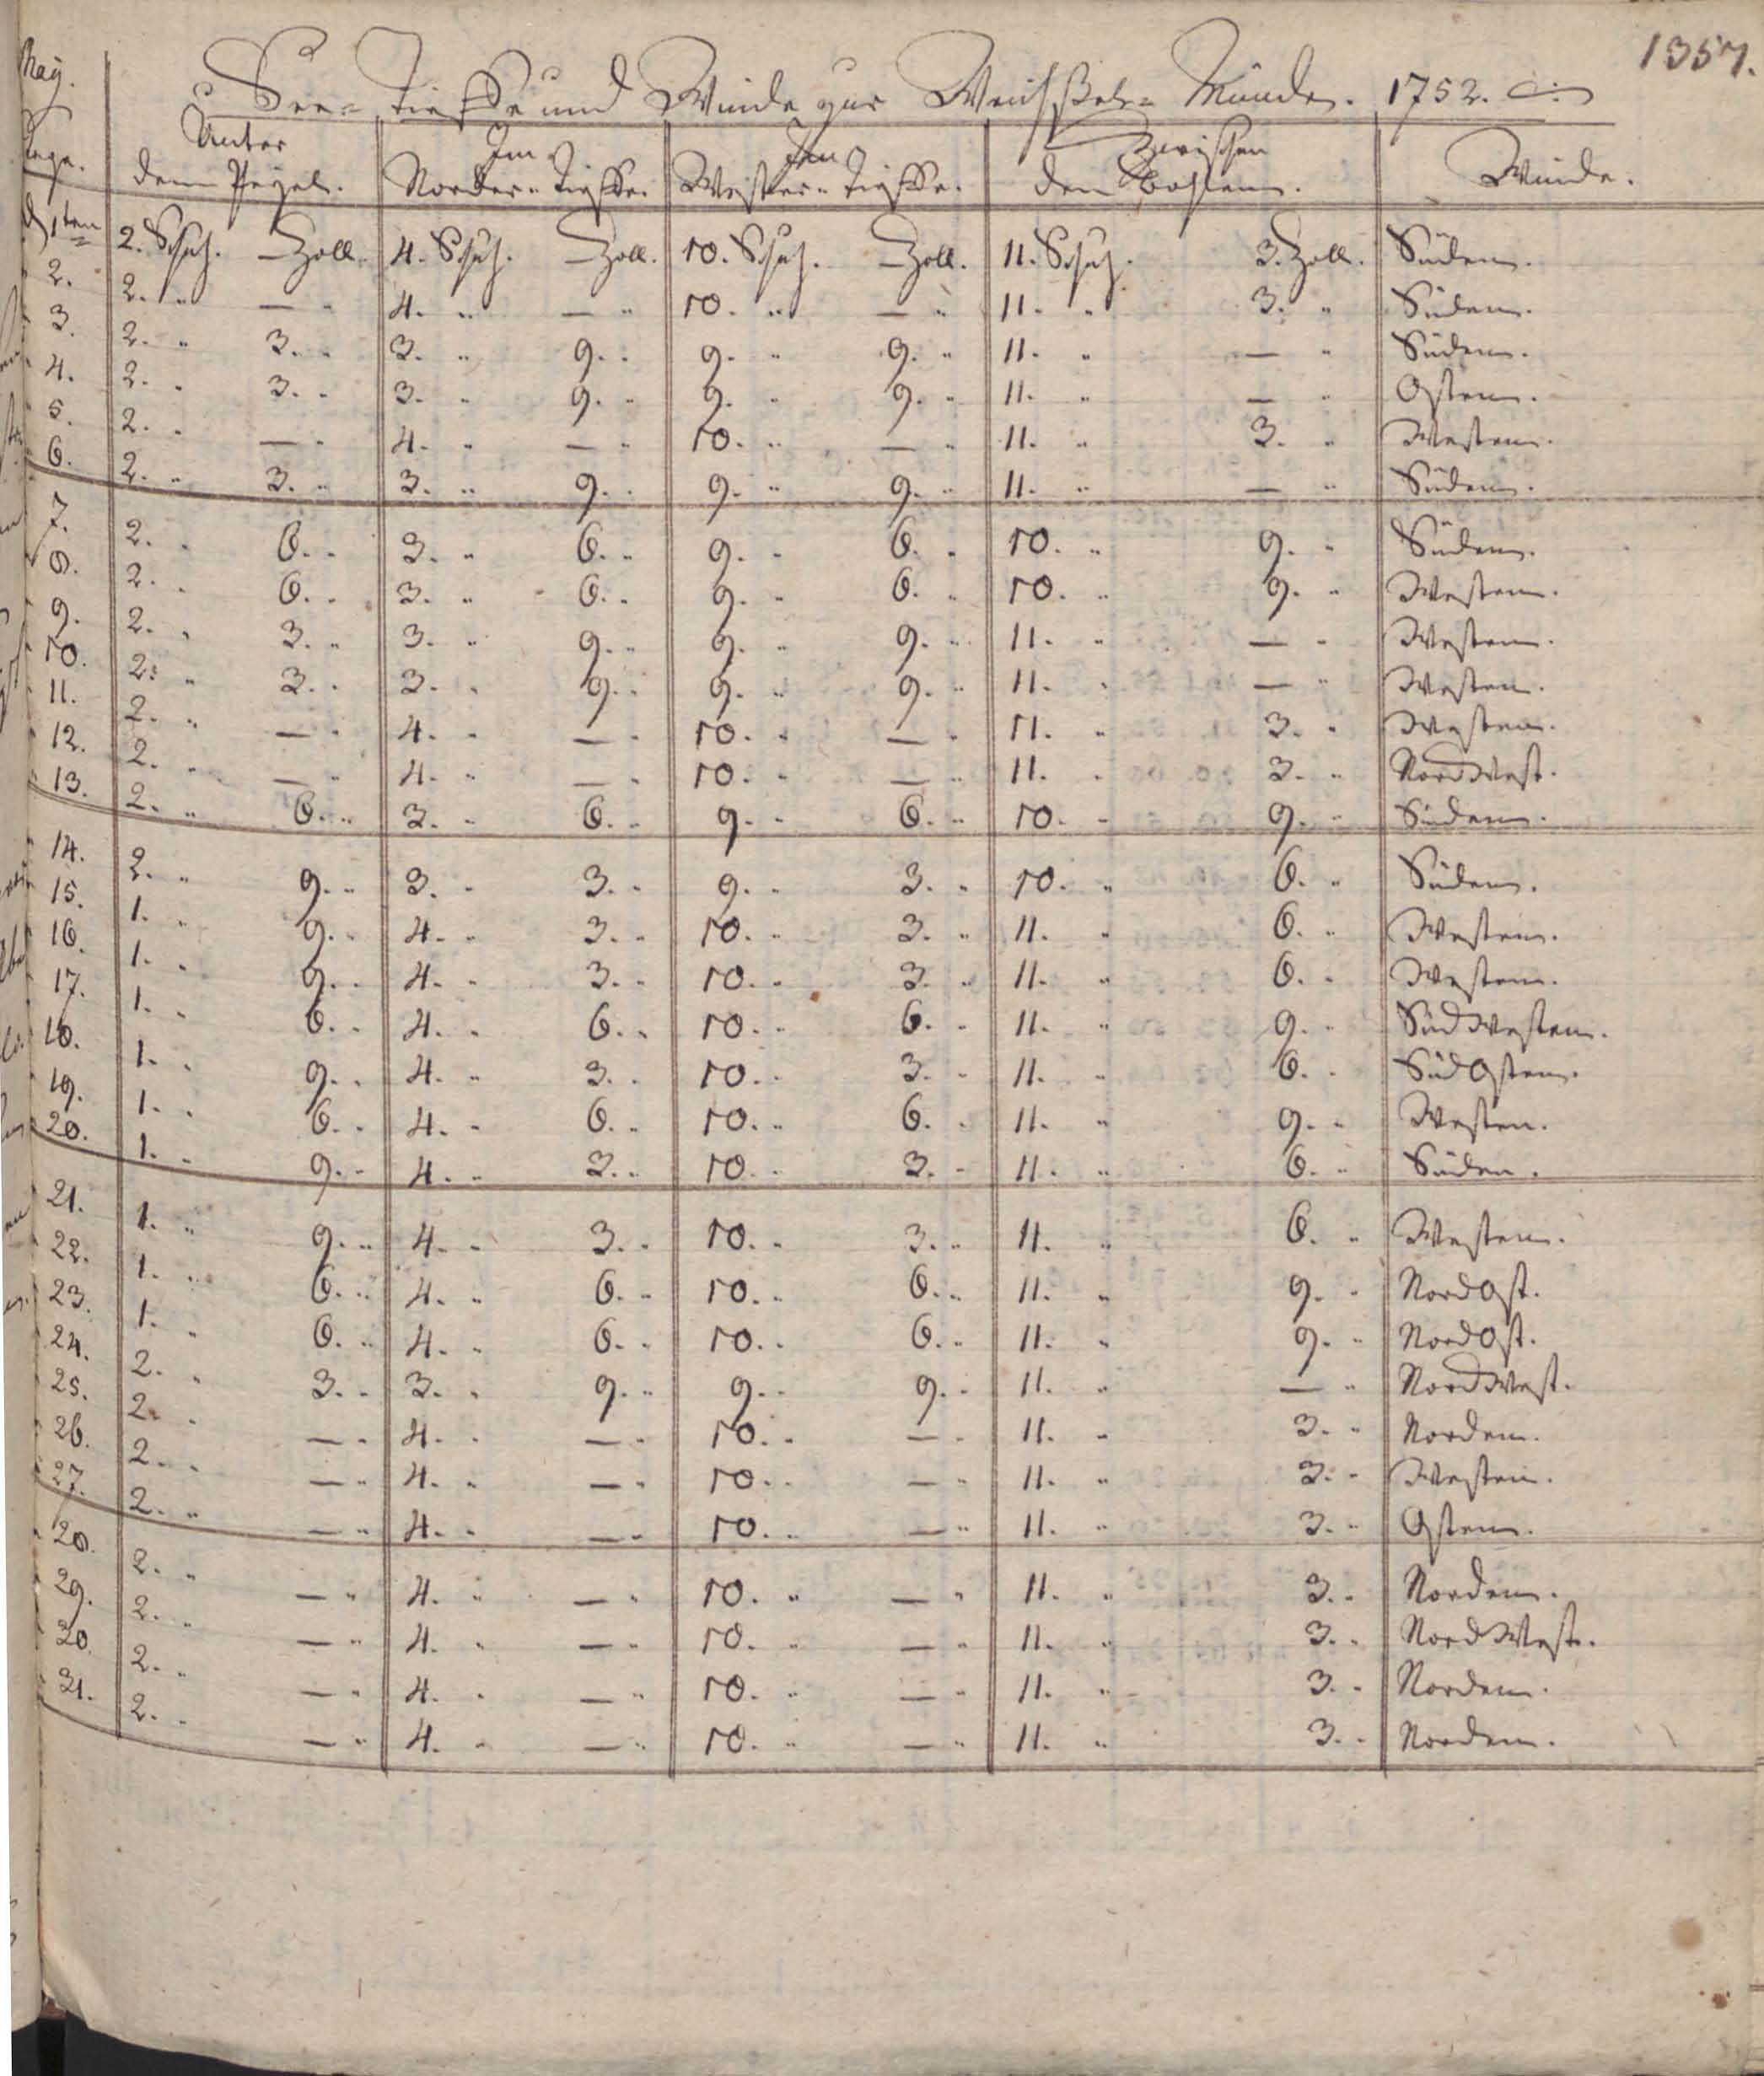 1357.
May.
See- Tieffe und Winde zur Weichßel- Münde. 1752.
Tage. Unter dem Pegel. Im Norder- Tieffe. Im Wester- Tieffe. Zwischen den Bohlen. Winde.
d 1ten 2. Schuh. — Zoll. 4. Schuh. — Zoll. 10. Schuh. — Zoll. 11. Schuh. 3. Zoll. Süden.
2. 2. " — " 4. " — " 10. " — " 11. " 3. " Süden.
3. 2. " 3. " 3. " 9. " 9. " 9. " 11. " — " Süden.
4. 2. " 3. " 3. " 9. " 9. " 9. " 11. " — " Osten.
5. 2. " — " 4. " — " 10. " — " 11. " 3. " Westen.
6. 2. " 3. " 3. " 9. " 9. " 9. " 11. " — " Süden.
7. 2. " 6. " 3. " 6. " 9. " 6. " 10. " 9. " Süden.
8. 2. " 6. " 3. " 6. " 9. " 6. " 10. " 9. " Westen.
9. 2. " 3. " 3. " 9. " 9. " 9. " 11. " — " Westen.
10. 2. " 3. " 3. " 9. " 9. " 9. " 11. " — " Westen.
11. 2. " — " 4. " — " 10. " — " 11. " 3. " Westen.
12. 2. " — " 4. " — " 10. " — " 11. " 3. " NordWest.
13. 2. " 6. " 3. " 6. " 9. " 6. " 10. " 9. " Süden.
14. 2. " 9. " 3. " 3. " 9. " 3. " 10. " 6. " Süden.
15. 1. " 9. " 4. " 3. " 10. " 3. " 11. " 6. " Westen.
16. 1. " 9. " 4. " 3. " 10. " 3. " 11. " 6. " Westen.
17. 1. " 6. " 4. " 6. " 10. " 6. " 11. " 9. " SüdWesten.
18. 1. " 9. " 4. " 3. " 10. " 3. " 11. " 6. " SüdOsten.
19. 1. " 6. " 4. " 6. " 10. " 6. " 11. " 9. " Westen.
20. 1. " 9. " 4. " 3. " 10. " 3. " 11. " 6. " Süden.
21. 1. " 9. " 4. " 3. " 10. " 3. " 11. " 6. " Westen.
22. 1. " 6. " 4. " 6. " 10. " 6. " 11. " 9. " NordOst.
23. 1. " 6. " 4. " 6. " 10. " 6. " 11. " 9. " NordOst.
24. 2. " 3. " 3. " 9. " 9. " 9. " 11. " — " NordWest.
25. 2. " — " 4. " — " 10. " — " 11. " 3. " Norden.
26. 2. " — " 4. " — " 10. " — " 11. " 3. " Westen.
27. 2. " — " 4. " — " 10. " — " 11. " 3. " Osten.
28. 2. " — " 4. " — " 10. " — " 11. " 3. " Norden.
29. 2. " — " 4. " — " 10. " — " 11. " 3. " NordWest.
30. 2. " — " 4. " — " 10. " — " 11. " 3. " Norden.
31. 2. " — " 4. " — " 10. " — " 11. " 3. " Norden.